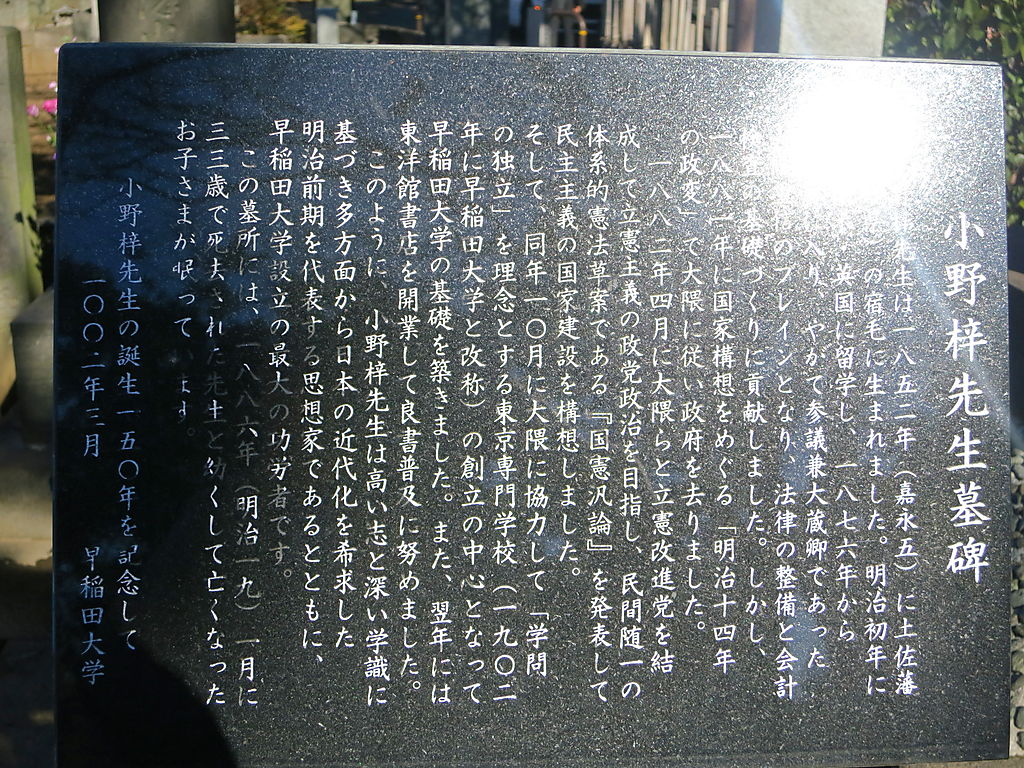 小野梓先生墓碑
先生は一八五二年（嘉永五）に土佐藩
の宿毛に生まれました。明治初年に
英国に留学し、一八七六年から
入り、やがて参議兼大蔵卿であった
のブレインとなり、法律の整備と会計
基礎づくりに貢献しました。しかし、
一八八一年に国家構想をめぐる「明治十四年
の政変」で大隈に従い政府を去りました。
一八八二年四月に大隈らと立憲改進党を結
成して立憲主義の政党政治を目指し、民間随一の
体系的憲法草案である『国憲汎論』を発表して
民主主義の国家建設を構想しました。
そして、同年一〇月に大隈に協力して「学問
の独立」を理念とする東京専門学校（一九〇二
年に早稲田大学と改称）の創立の中心となって
早稲田大学の基礎を築きました。また、翌年には
東洋館書店を開業して良書普及に努めました。
このように、小野梓先生は高い志と深い学識に
基づき多方面から日本の近代化を希求した
明治前期を代表する思想家であるとともに、
早稲田大学設立の最大の功労者です。
この墓所には、一八八六年（明治一九）一月に
三三歳で死去された先生と幼くして亡くなった
お子さまが眠っています。
小野梓先生の誕生一五〇年を記念して
二〇〇二年三月　早稲田大学